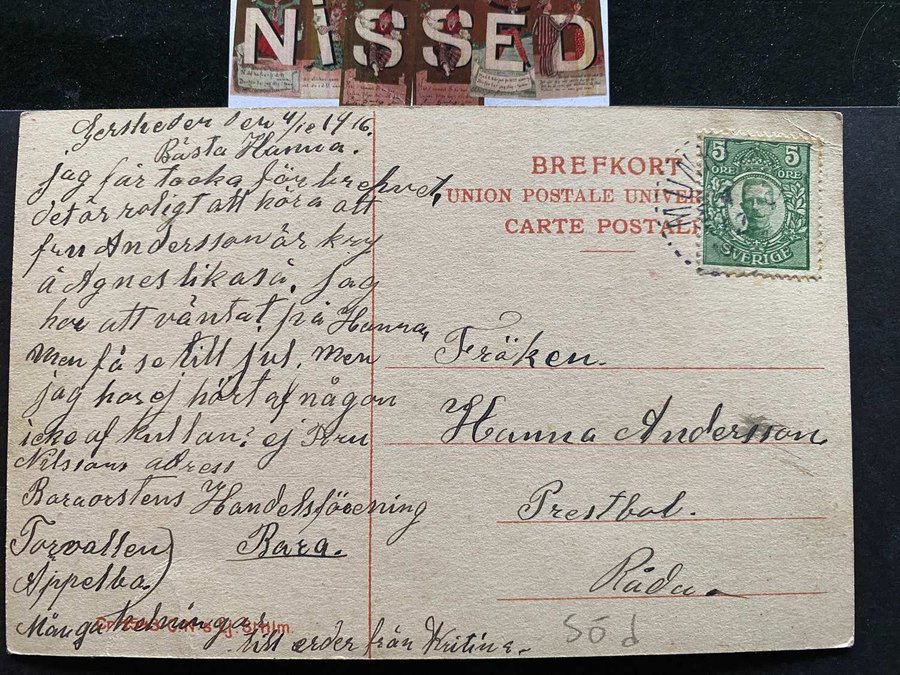 NISSED
den 4/10 1916.
Bästa Hanna.
jag får tacka för brehvet,
det är roligt att höra att
fru Andersson är kry
å Agnes likaså. Jag
har att väntat på Hanna,
Men få se till jul. Men
jag har ej hört af någon
icke af kullan? ej Fru
Nilssons adress
Handelsförening
Torvallen)
Bara.
Äppelbo.
Många helsningar
till eder från Kritina.
BREFKORT
UNION POSTALE UNIVER
CARTE POSTALE
5 5
ÖRE ÖRE
SVERIGE
Fröken.
Hanna Andersson
Prestbol.
Råda
Söd